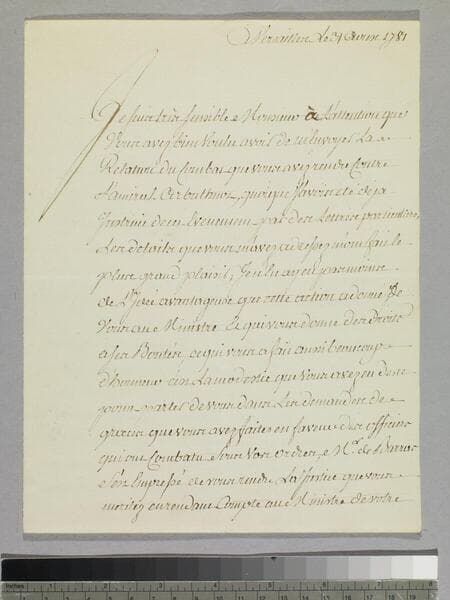 A Versailles Le 31 1781
Je suis très sensible Monsieur à L'attention que
Vous avez bien Voulu avoir de m'Envoyer La
Relation du Combat que vous avez rendu Contre
L'amiral Arbuthnot, quoique J'avois eté deja
Instruit de cet Evenement par des Lettres particulieres,
Les détails que vous m'avez adressés m'ont fait le
plus grand plaisir,
de L'Idée avantageuse que cette action a donné de
Vous au Ministre Ce qui vous donne des Droits
a ses Bontés, ce qui vous a fait aussi beaucoup
d'honneur c'est La modestie que Vous avez eu de ne
point parler de vous dans Les demandes de
graces que vous avez faites en faveur des officiers
qui ont Combatu sous Vos ordres, Mr. de Barras
s'est Empressé de vous rendre La Justice que vous
meritez en rendant Compte au Ministre de votre
Inches 1 2 3 4 5 6 7 8